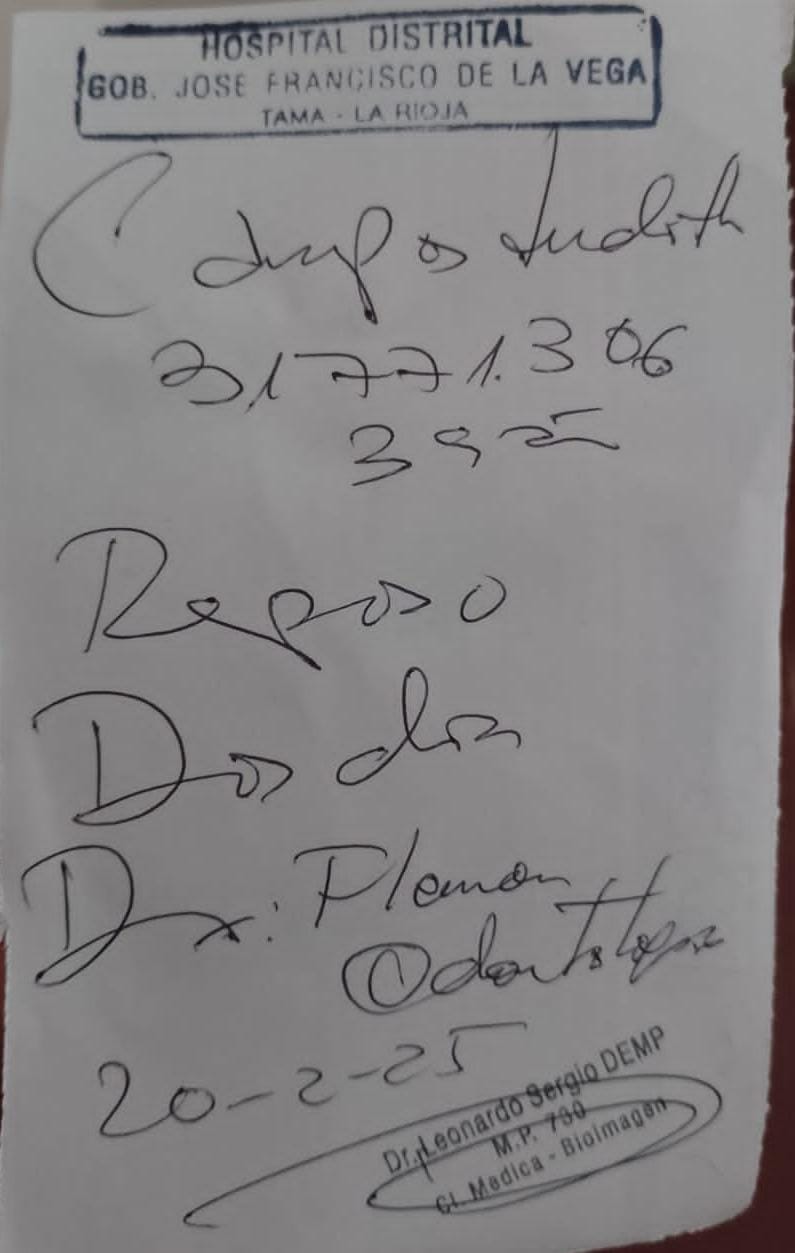 HOSPITAL DISTRITAL
GOB. JOSE FRANCISCO DE LA VEGA
TAMA - LA RIOJA
Campos Judith
31771.306
39
Reposo
Dos dias
Dx: Flemon
Odont
20-2-25
Dr. Leonardo Sergio DEMP
M.P. 790
Cl. Medica - Bioimagen